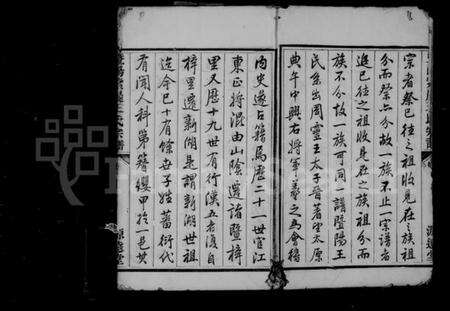 宗者祭已往之祖收見在之族祖
分而祭亦分故一族不止一宗譜者
進已往之祖收見在之族祖分而
族不分故一族可同一譜暨陽王
氏系出周靈王太子晉著望太原
典午中興右將軍羲之為會稽
內史遂占籍焉歷二十一世室江
東正將混由山陰遷諸暨梓
里又歷十九世有行漢五者復自
梓里遷新湖是謂新湖世祖
迄今已十有餘世子姓蕃衍代
有聞人科第簪纓甲於一邑其